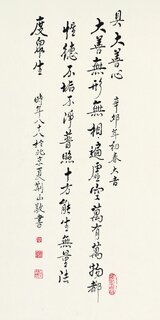 具大善心
辛卯年初春大吉
大善無形無相遍虛空萬有萬物都
惟德不垢不淨普照十方能生無量法
度眾生
時年八十八於北京夏荊山敬書